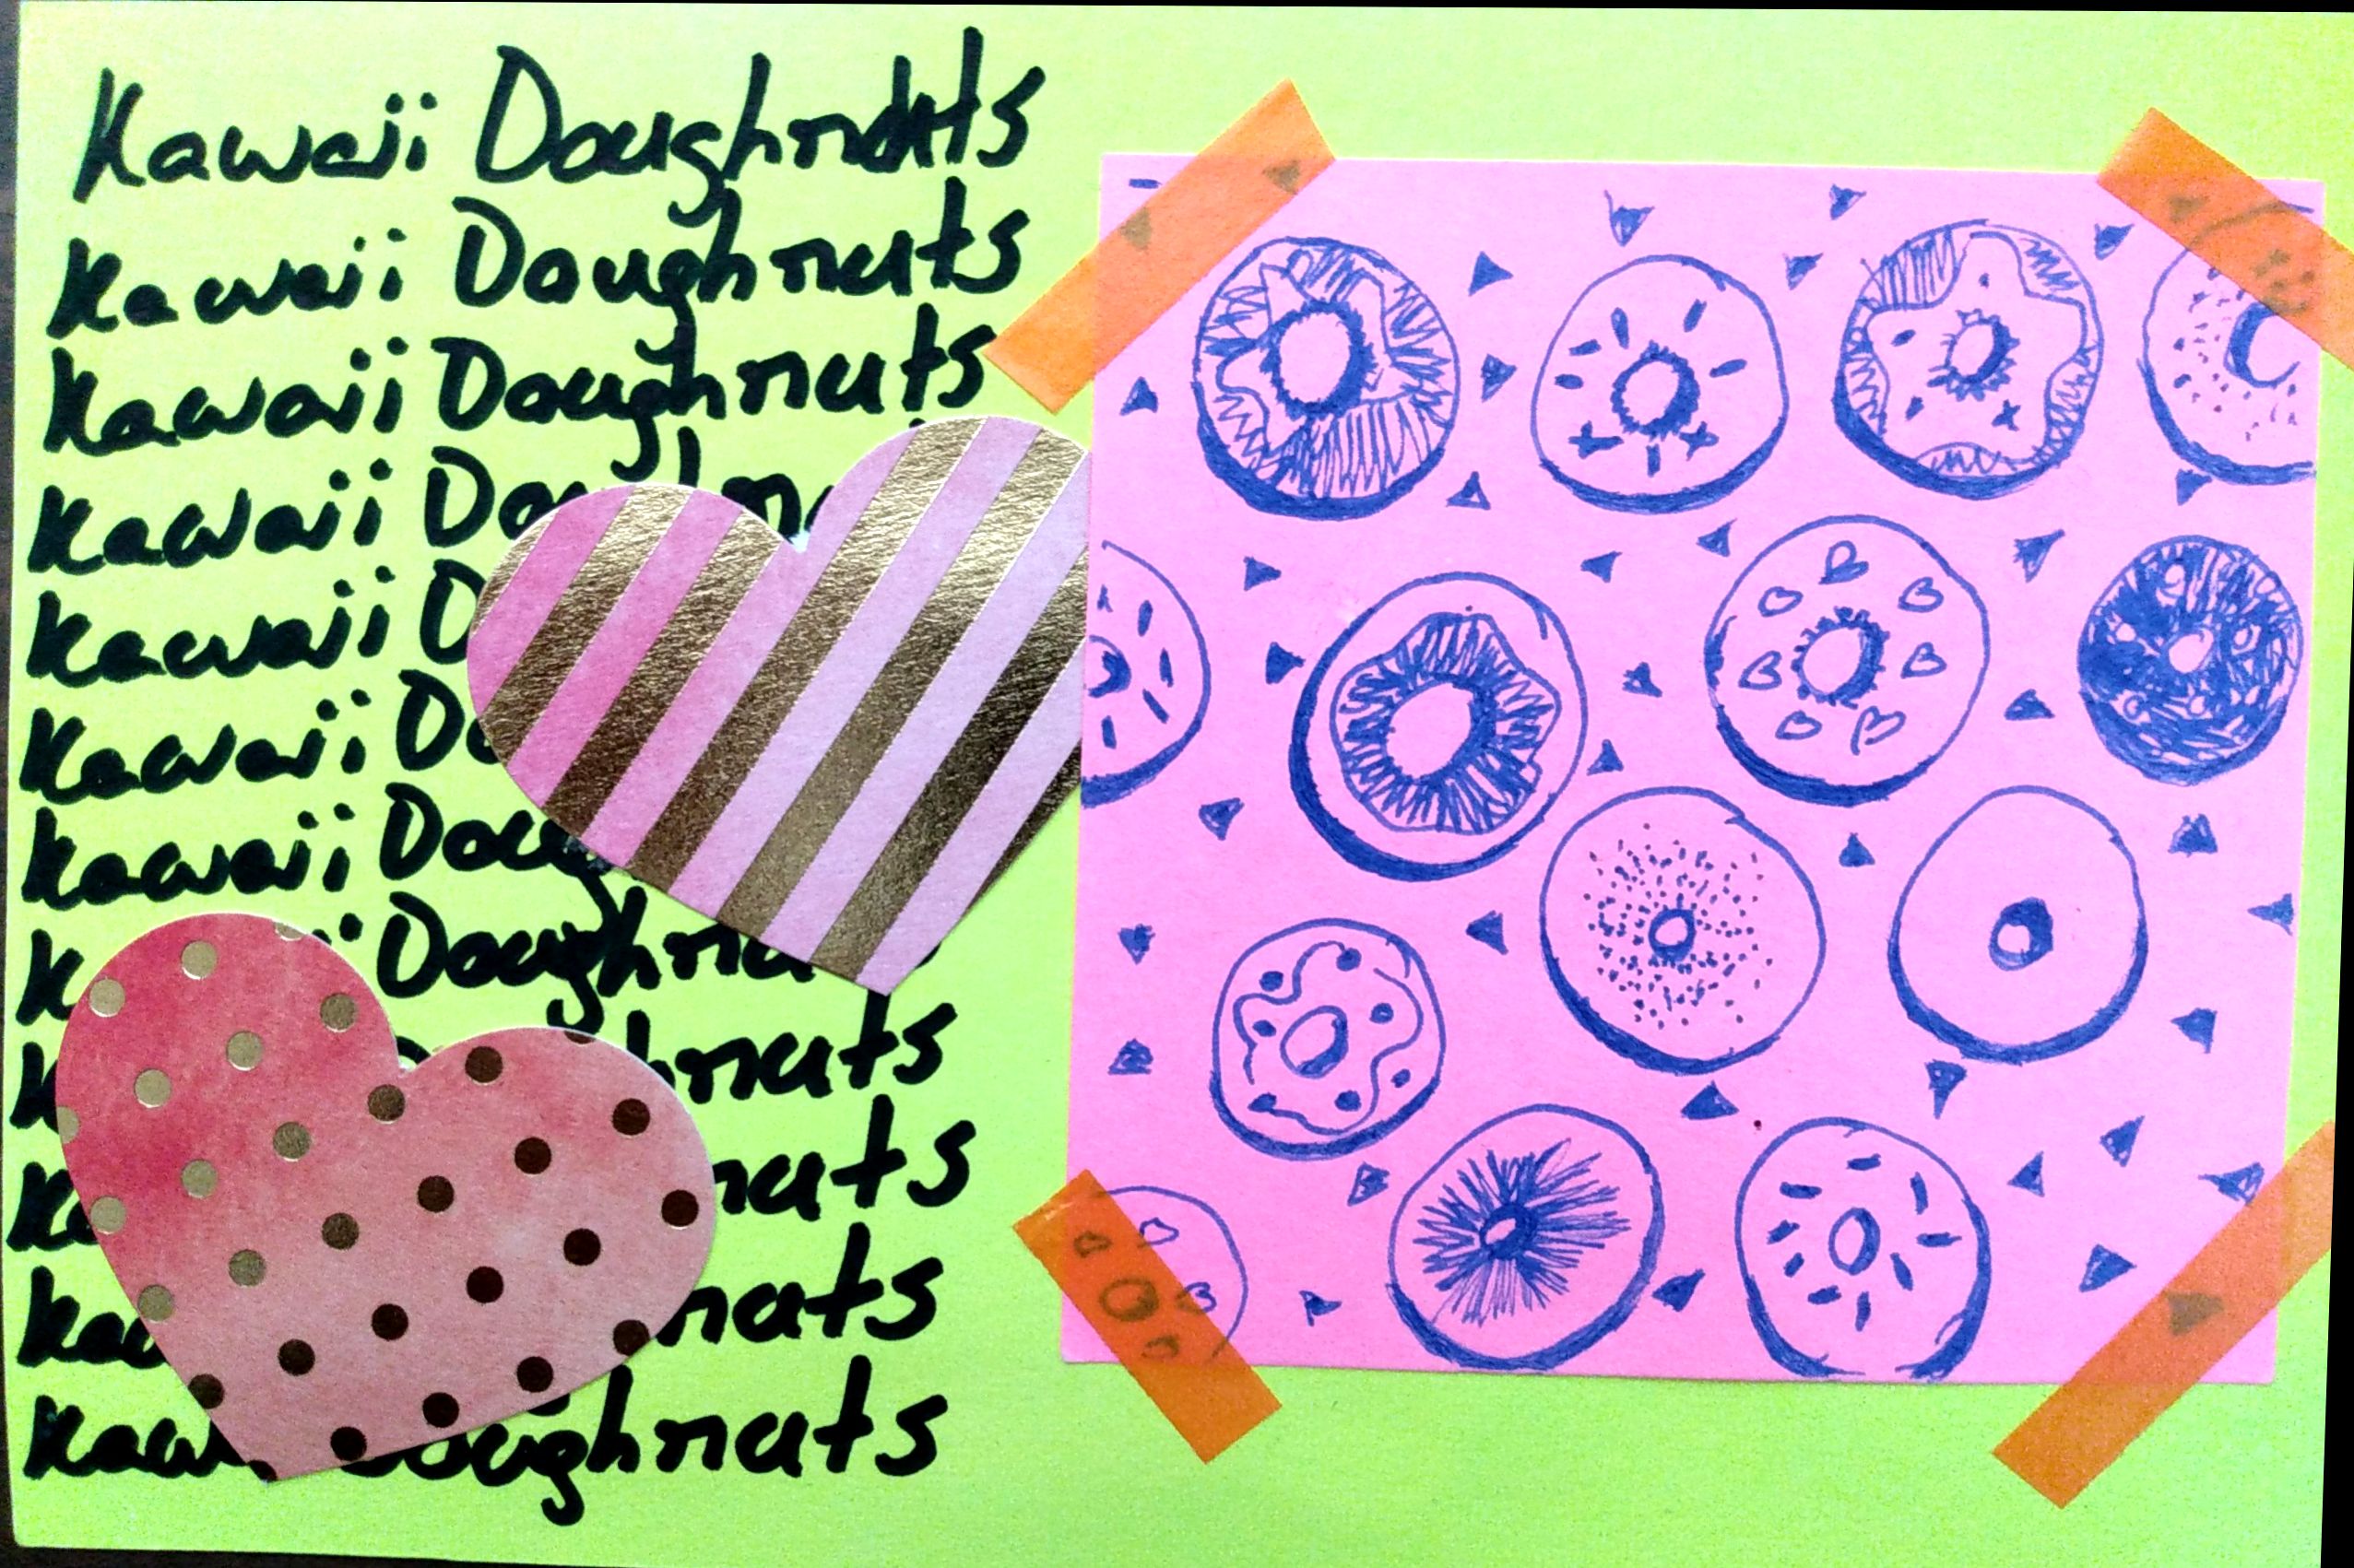 Kawaii Doughnuts
Kawaii Doughnuts
Kawaii Doughnuts
Kawaii
Kawaii D
Kawaii Do
Kawaii Doug
K i Doughnu
K hnuts
Ka nuts
Kaw nuts
Kaw Doughnuts